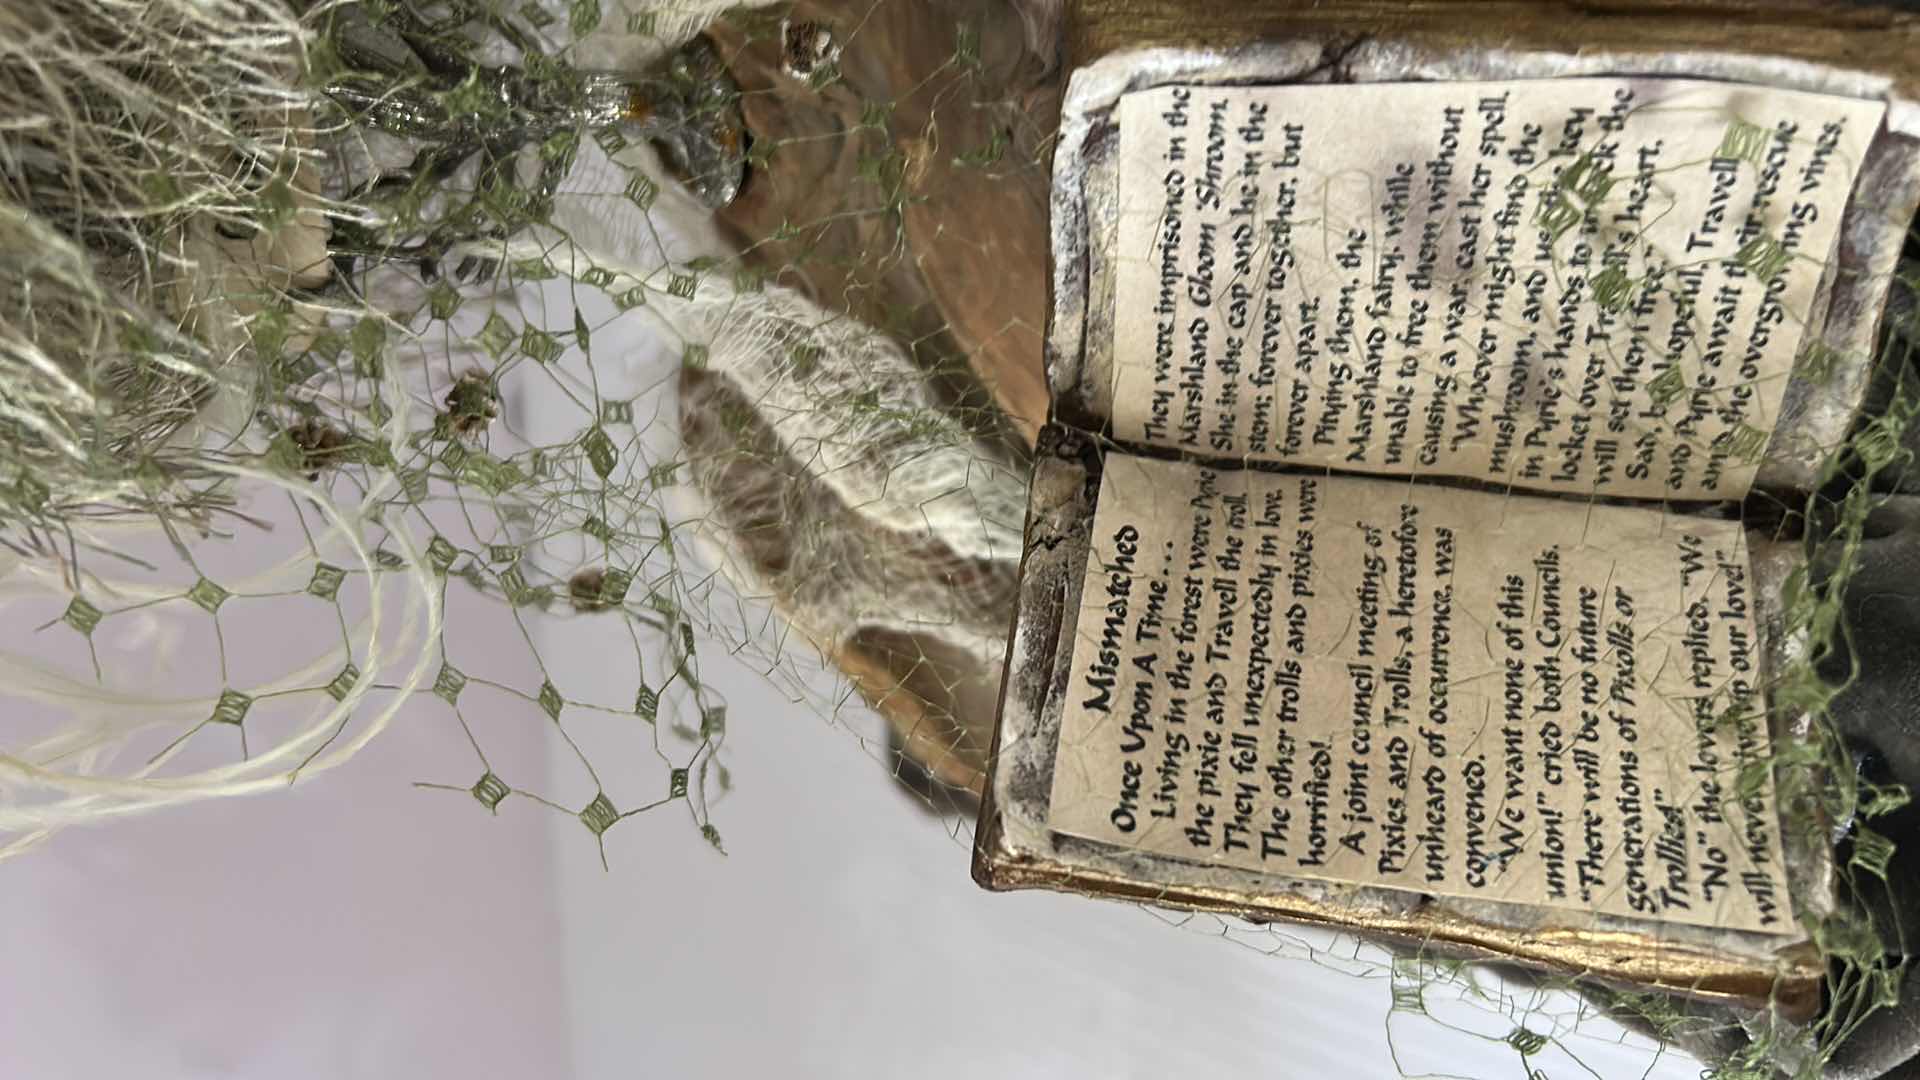 Mismatched
Once Upon A Time...
Living in the forest were Pyne
the pixie and Travell the troll.
They fell unexpectedly in love.
The other trolls and pixies were
horrified!
A joint council meeting of
Pixies and Trolls, a heretofore
unheard of occurrence, was
convened.
"We want none of this
union!" cried both Councils.
"There will be no future
generations of Pixolls or
Trollies!"
"No" the lovers replied. "We
will never give up our love!"
They were imprisoned in the
Marshland Gloom Shroom.
She in the cap and he in the
stem; forever together, but
forever apart.
Pitying them, the
Marshland fairy, while
unable to free them without
causing a war, cast her spell.
"Whoever might find the
mushroom, and use the key
in Pyne's hands to unlock the
locket over Travell's heart,
will set them free."
Sad, but hopeful, Travell
and Pyne await their rescue
amid the overgrowing vines.